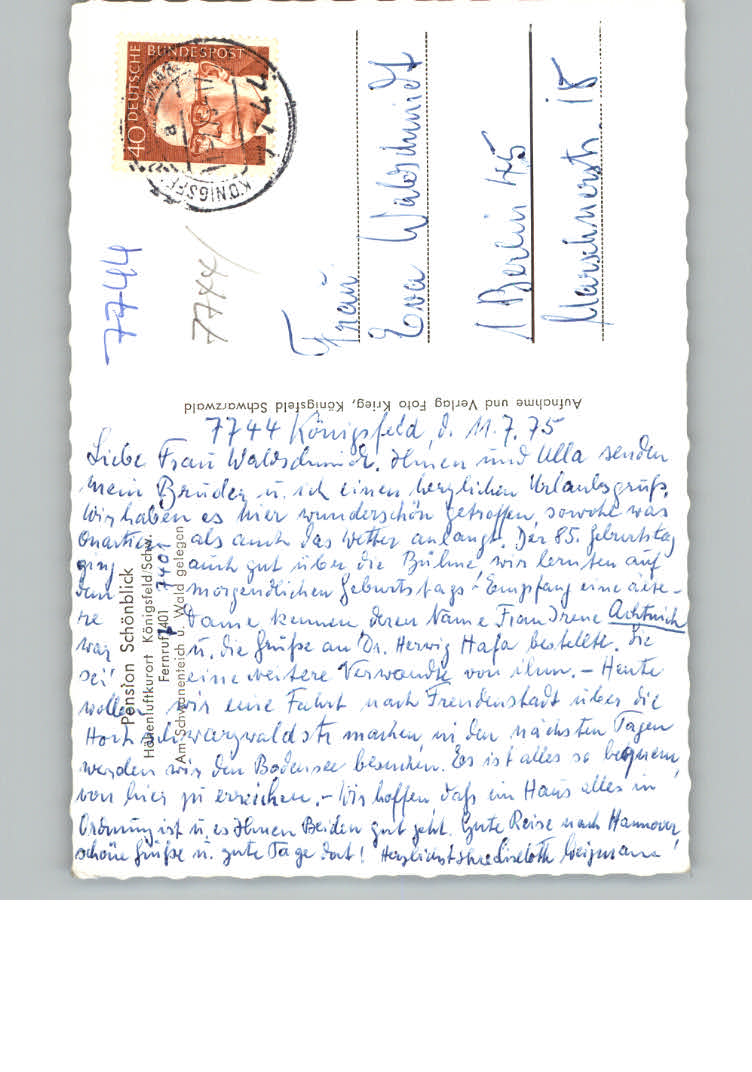 DEUTSCHE BUNDESPOST
40
KÖNIGSFE
7744
7744
Frau
Eva Waldschmidt
1 Berlin 45
Marschnerstr. 18
Aufnahme und Verlag Foto Krieg, Königsfeld Schwarzwald
Pension Schönblick
Höhenluftkurort Königsfeld/Schw.
Fernruf 7401
7401
Am Schwanenteich u. Wald gelegen
7744 Königsfeld, d. 11.7.75
Liebe Frau Waldschmidt. Ihnen und Ulla senden
mein Bruder u. ich einen herzlichen Urlaubsgruß.
Wir haben es hier wunderschön getroffen, sowohl was
Quartier als auch das Wetter anlangt. Der 85. Geburtstag
ging auch gut über die Bühne, wir lernten auf
dem morgendlichen Geburtstags-Empfang eine älte-
re Dame kennen deren Name Frau Irene Achtnich
war u. die Grüße an Dr. Herwig Hafa bestellte. Sie
sei eine weitere Verwandte von ihm. – Heute
wollen wir eine Fahrt nach Freudenstadt über die
Hochschwarzwaldstr. machen in den nächsten Tagen
werden wir den Bodensee besuchen. Es ist alles so bequem
von hier zu erreichen. – Wir hoffen daß im Haus alles in
Ordnung ist u. es Ihnen Beiden gut geht. Gute Reise nach Hannover
schöne Grüße u. gute Tage dort! Herzlichst Ihre Liselotte